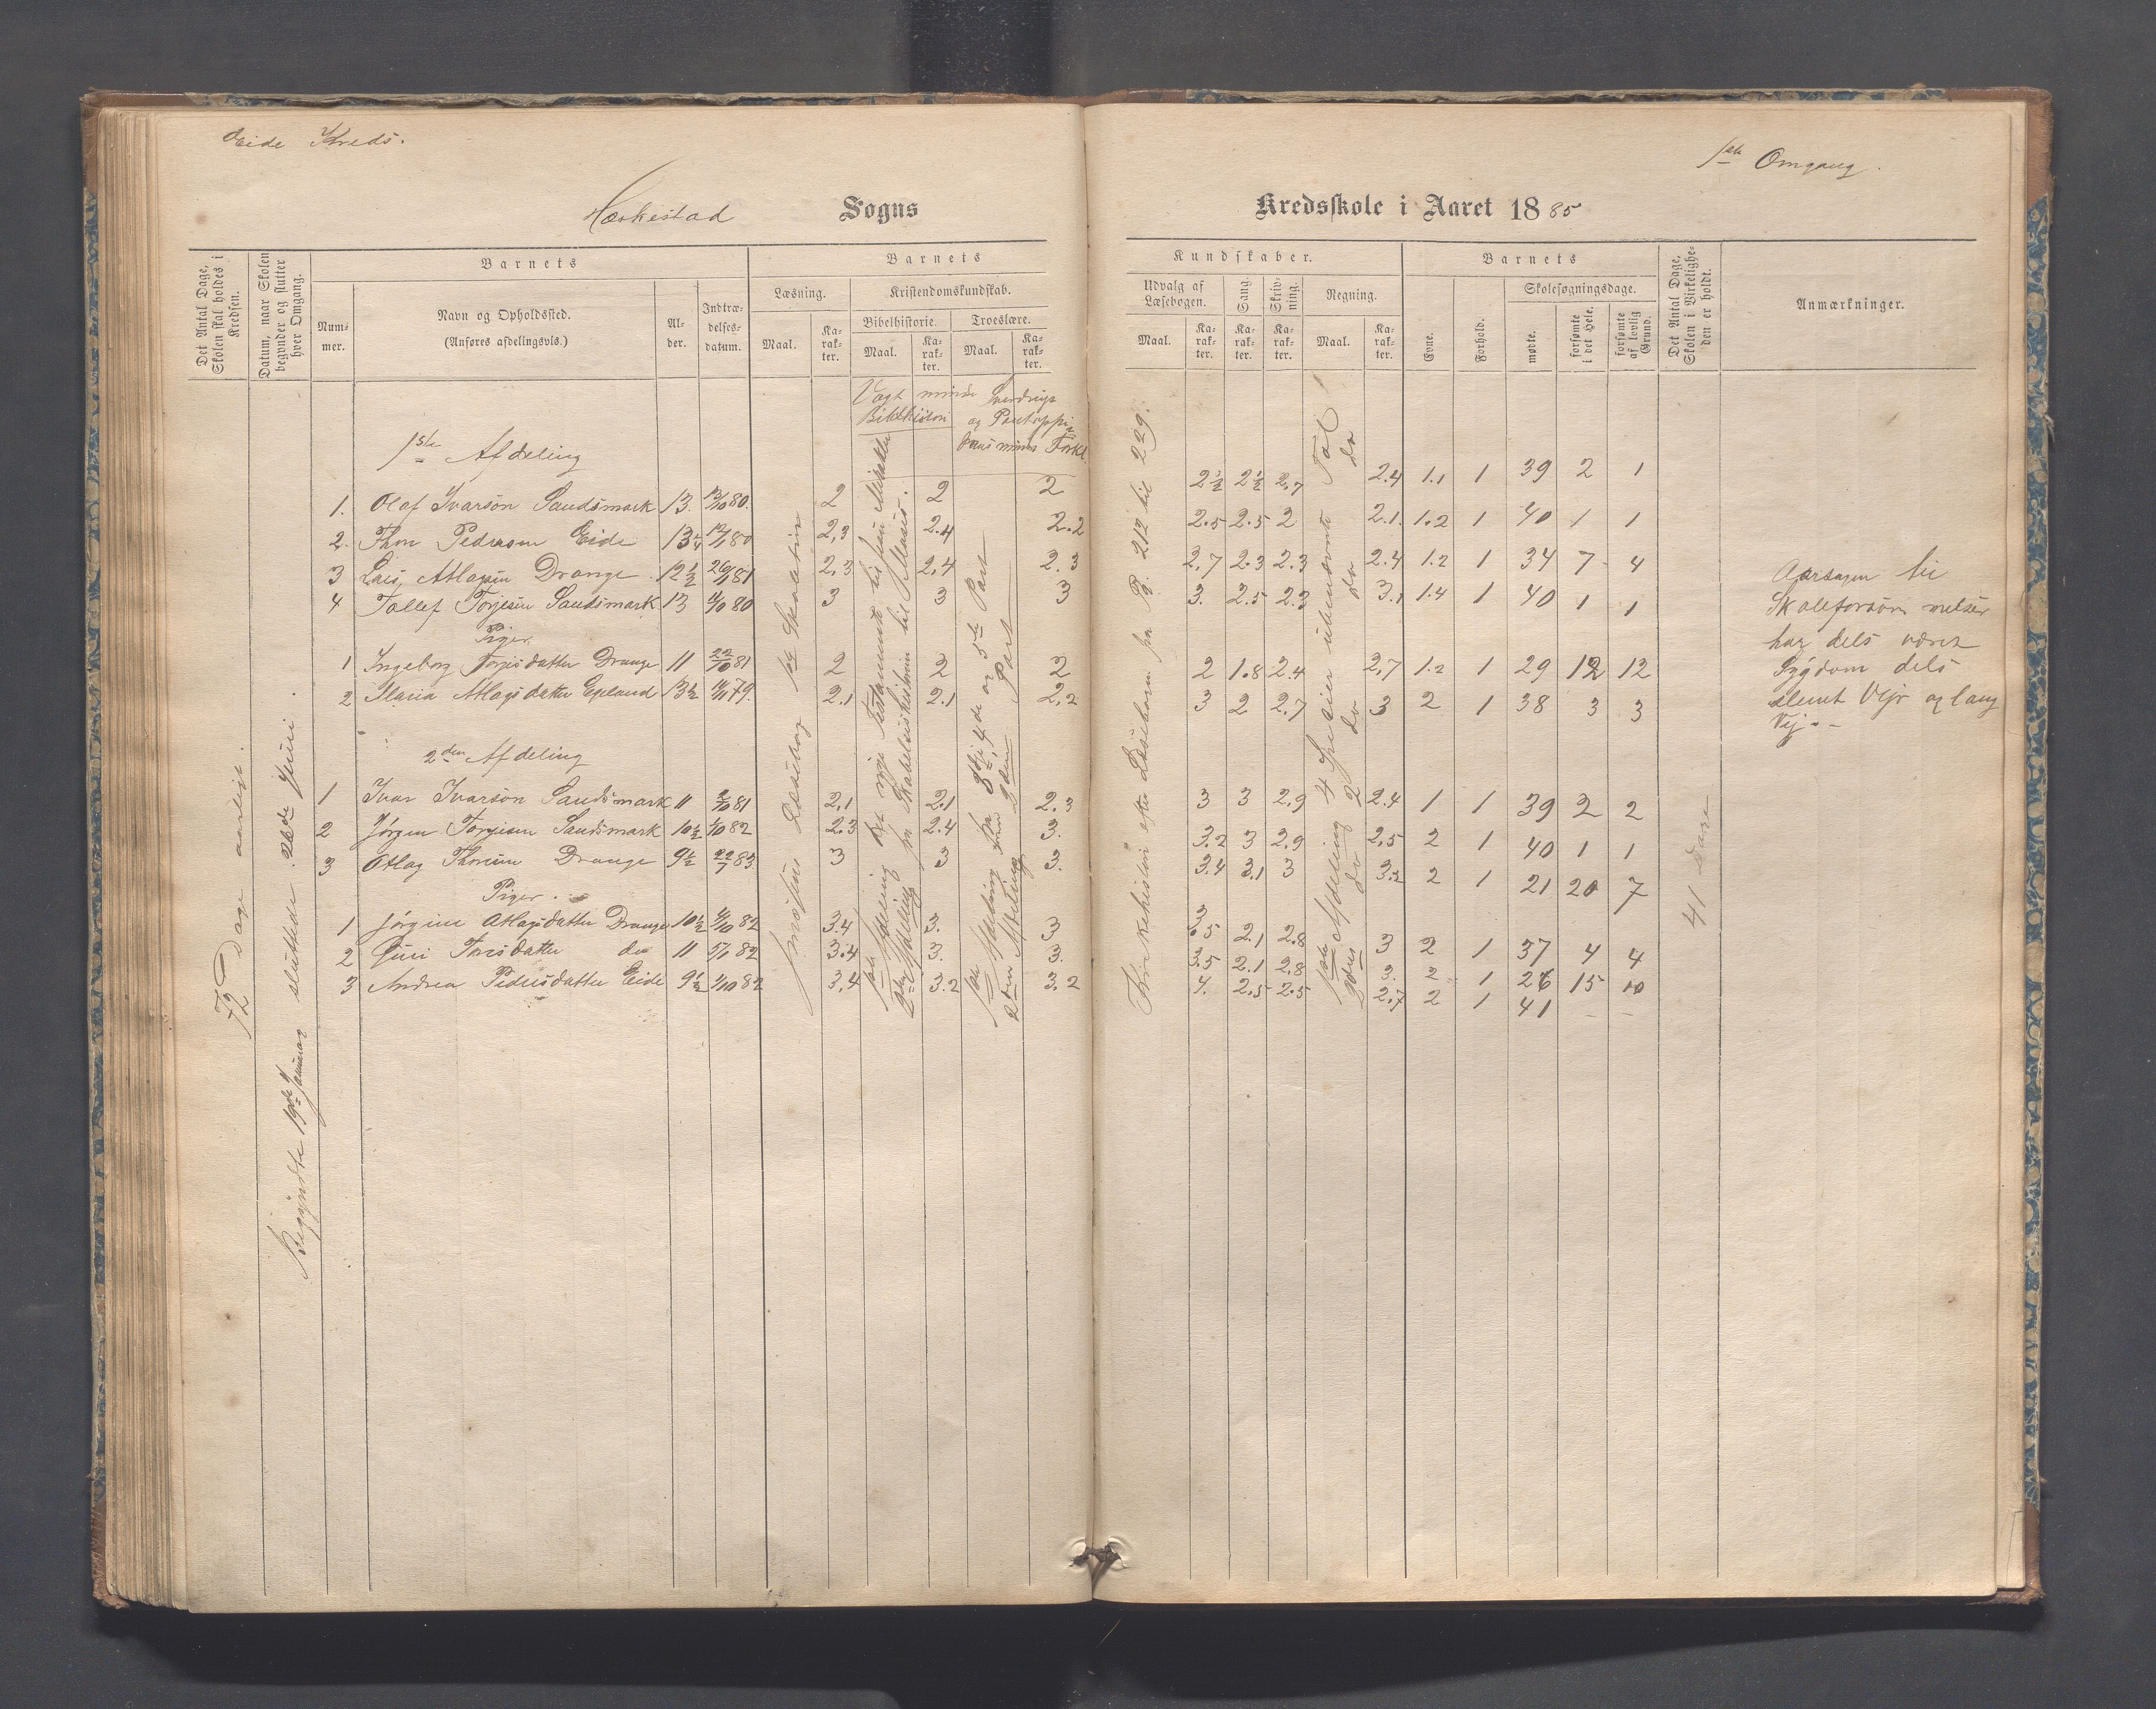 Eide Kreds.
1ste Omgang.
Heskestad Sogns Kredsskole i Aaret 1885
Det Antal Dage, Skolen skal holdes i Kredsen.
Datum, naar Skolen begynder og slutter hver Omgang.
Barnets
Num-mer.
Navn og Opholdssted.
(Anføres afdelingsvis.)
Al-der.
Indtræ-delses-datum.
Barnets
Læsning.
Maal.
Ka-rak-ter.
Kristendomskundskab.
Bibelhistorie.
Maal.
Ka-rak-ter.
Troeslære.
Maal.
Ka-rak-ter.
Kundskaber.
Udvalg af Læsebogen.
Maal.
Ka-rak-ter.
Sang.
Ka-rak-ter.
Skriv-ning.
Ka-rak-ter.
Regning.
Maal.
Ka-rak-ter.
Barnets
Evne.
Forhold.
Skolesøgningsdage.
mødte.
forsømte i det Hele.
forsømte af lovlig Grund.
Det Antal Dage, Skolen i Virkelighe-den er holdt.
Anmærkninger.
72 Dage aarligt.
Begyndte 19de Januar sluttede 26de Juni.
Vogt mindre Bibelhistori
Sverdrups og Pontoppidans mindre Forkl.
1ste Afdeling
1. Olaf Ivarson Sandsmark 13. 13/10 80. 2 2 2 2½ 2½ 2,7 2.4 1.1 1 39 2 1
2. Thor Pederson Eide 13¼ 12/1 80 2,3 2.4 2.2 2.5 2.5 2 2.1. 1.2 1 40 1 1
3 Lars Atlagsen Drange 12½ 26/1 81 2,3 2,4 2.3 2,7 2.3 2.3 2.4 1.2 1 34 7 4
4 Tollef Torjesen Sandsmark 13 4/10 80 3 3 3 3. 2.5 2.3 3.1 1.4 1 40 1 1
Piger
1 Ingeborg Torjesdatter Drange 11 22/10 81 2 2 2 2 1.8 2.4 2,7 1.2 1 29 12 12
2 Atlagsdatter 13½ 79. 2.1 2.1 2,2 3 2 2.7 3 2 1 38 3 3
2den Afdeling
1 Ivar Ivarson Sandsmark 11 81 2,1 2.1 2.3 3 3 2,9 2.4 1 1 39 2 2
2 Jørgen Torjesen Sandsmark 10½ 4/10 82 2.3 2.4 3. 3.2 3 2.9 2,5 2 1 40 1 1
3 Atlag Thorsen Drange 9½ 22/7 83. 3 3 3. 3.4 3.1 3 3.2 2 1 21 20 7
Piger.
1 Jørgine Atlagsdatter Drange 10½ 4/10 82 3.4 3. 3 3.5 2.1 2.8 3 2 1 37 4 4
2 Guri Toresdatter do 11 5/1 82 3.4 3. 3. 3.5 2.1 2.8 3. 2 1 26 15 10
3 Andrea Pedersdatter Eide 9½ 4/10 82 3,4 3.2 3.2 4. 2.5 2.5 2,7 2 1 41 – –
Jensens Læsebog
1ste Afdeling det nye Testamente til
2den Afdeling fra til Moses.
1ste Afdeling fra 3die, 4de og 5te Part
2den Afdeling 2den Part
Kirkehistori efter Læsebogen fra Pg. 212 til 229.
1ste Afdeling 4 Specier ubenævnte Tal
2den do 2 do do do
41 Dage
Aarsagen til
Skoleforsømmelser
har dels været
Sygdom dels
slemt Vejr og lang
Vej. –